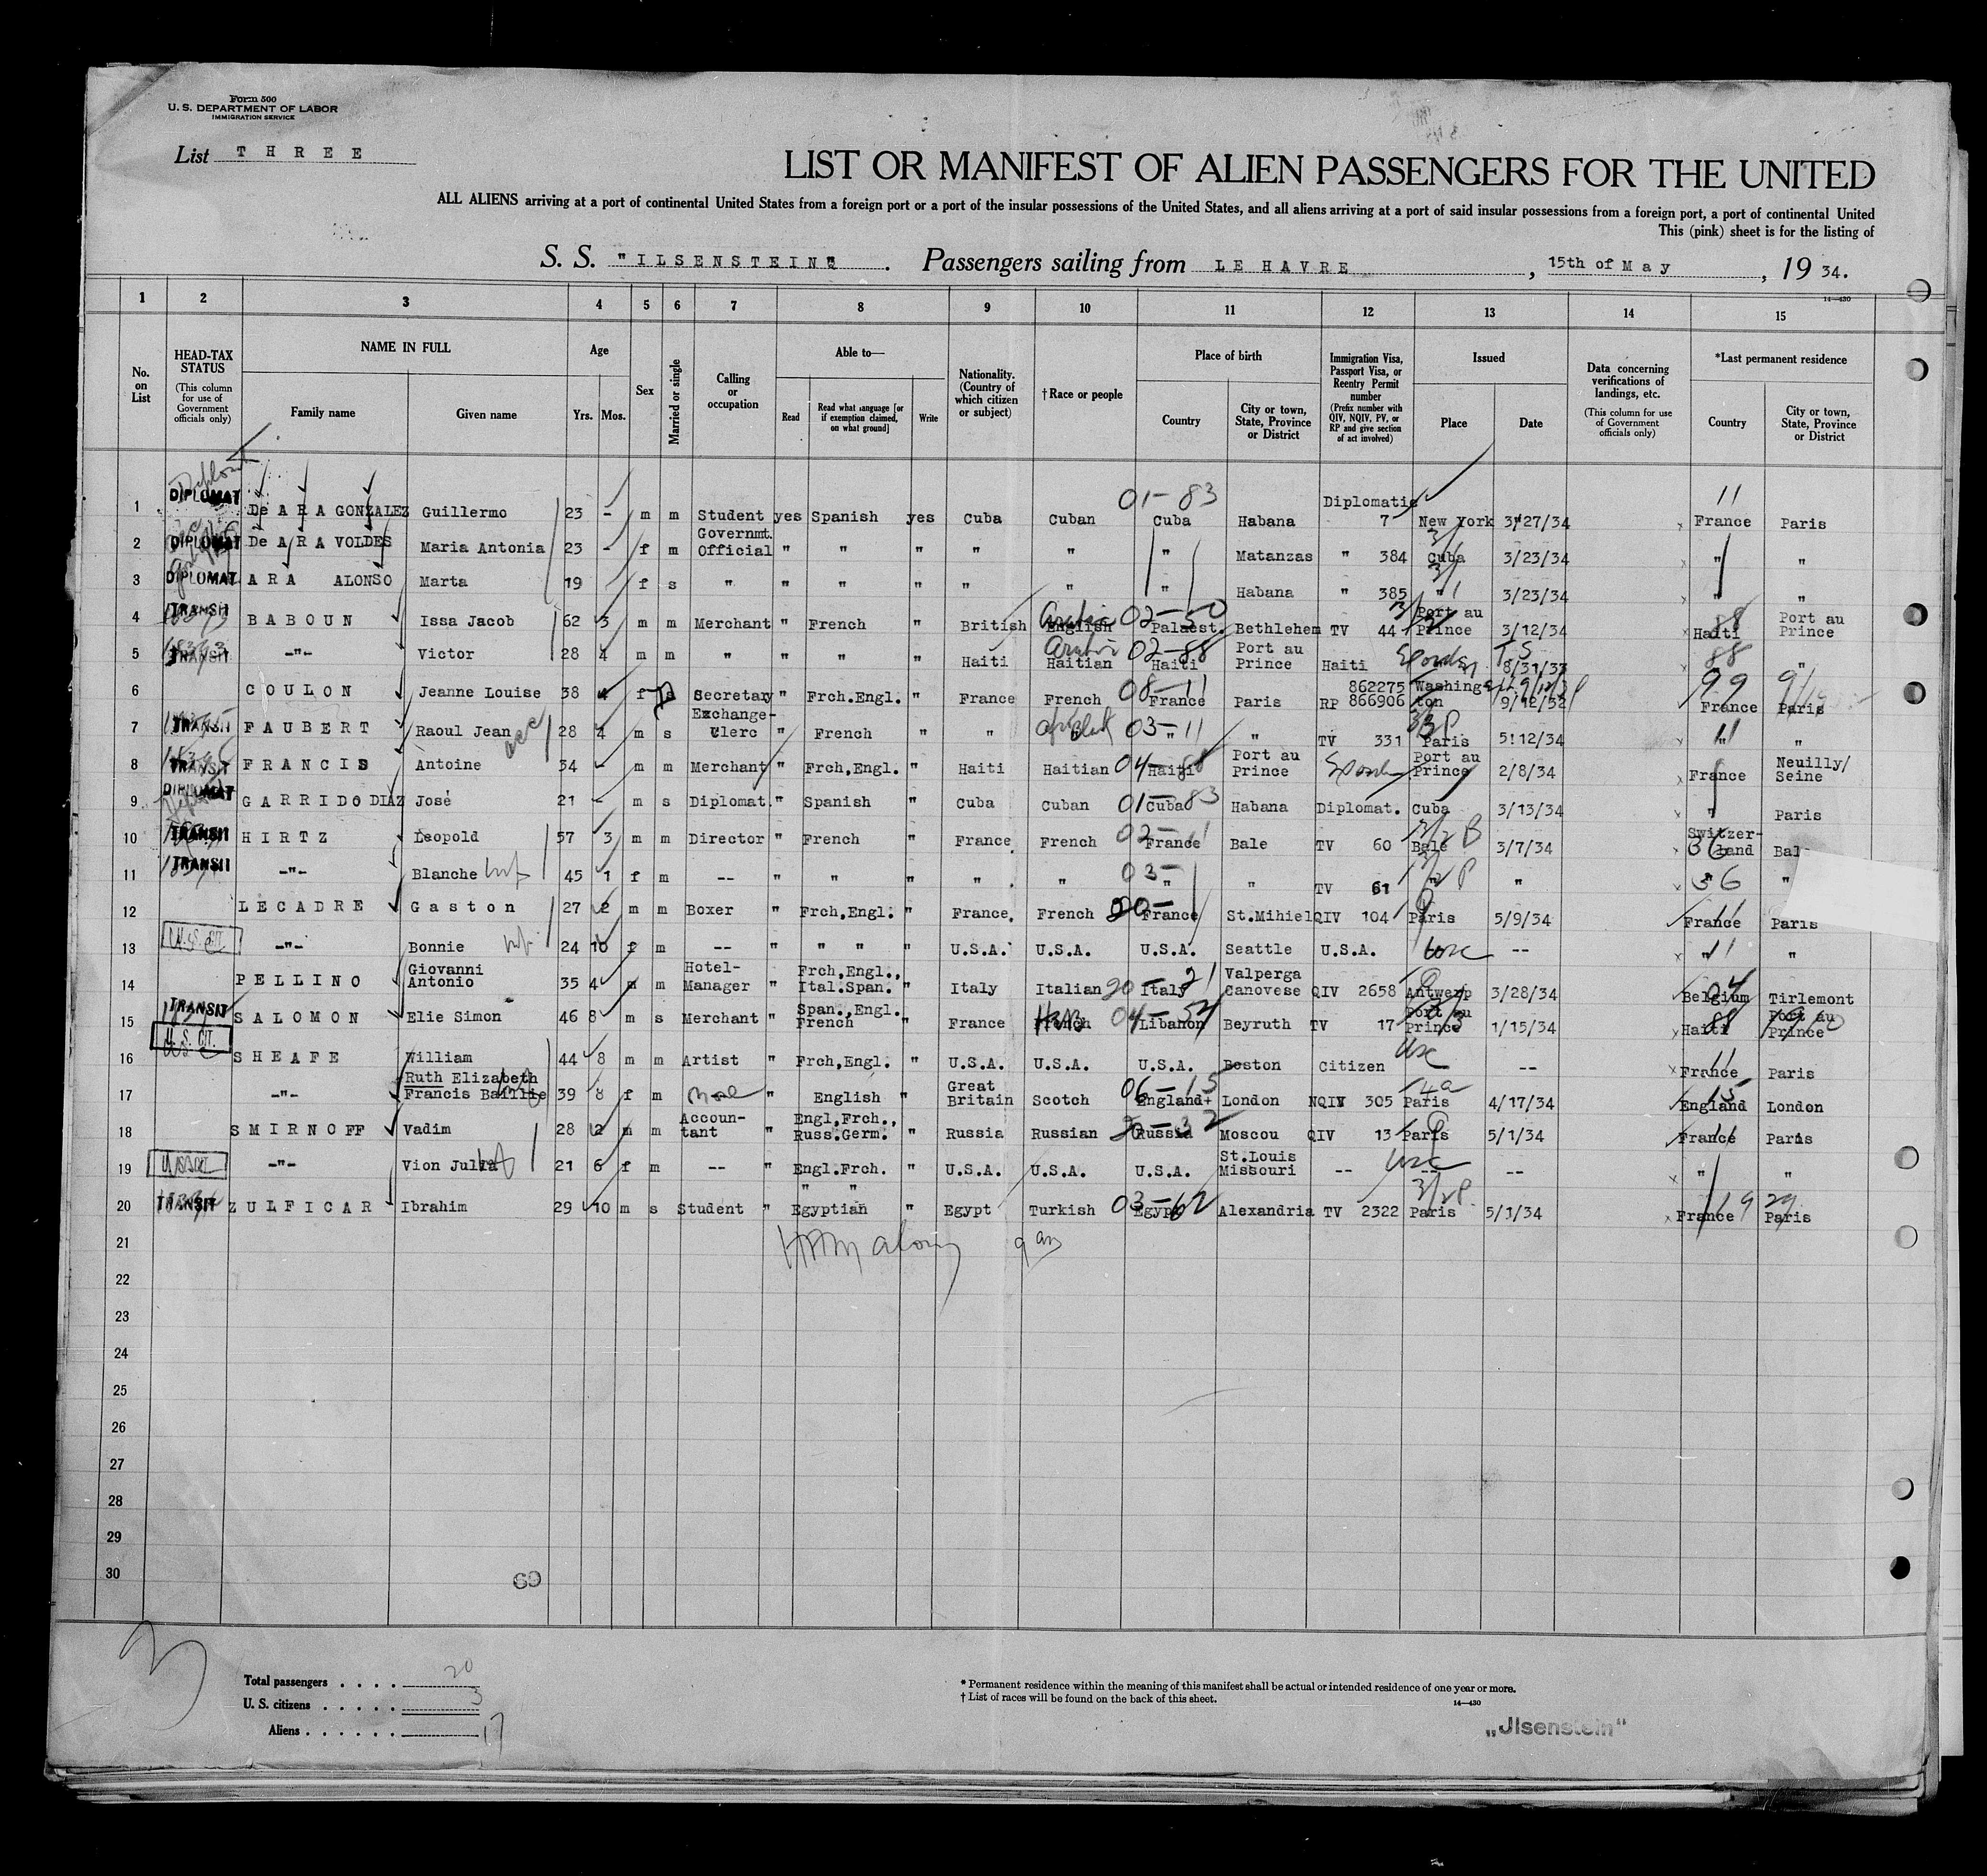 Form 500
U. S. DEPARTMENT OF LABOR
IMMIGRATION SERVICE
List THREE
LIST OR MANIFEST OF ALIEN PASSENGERS FOR THE UNITED
ALL ALIENS arriving at a port of continental United States from a foreign port or a port of the insular possessions of the United States, and all aliens arriving at a port of said insular possessions from a foreign port, a port of continental United
This (pink) sheet is for the listing of
S. S. "ILSENSTEIN". Passengers sailing from LE HAVRE, 15th of May, 19 34.
14—430
1 2 3 4 5 6 7 8 9 10 11 12 13 14 15
No. on List
HEAD-TAX STATUS (This column for use of Government officials only)
NAME IN FULL Family name Given name
Age Yrs. Mos.
Sex
Married or single
Calling or occupation
Able to— Read Read what language [or if exemption claimed, on what ground] Write
Nationality. (Country of which citizen or subject)
†Race or people
Place of birth Country City or town, State, Province or District
Immigration Visa, Passport Visa, or Reentry Permit number (Prefix number with QIV, NQIV, PV, or RP and give section of act involved)
Issued Place Date
Data concerning verifications of landings, etc. (This column for use of Government officials only)
*Last permanent residence Country City or town, State, Province or District
1 DIPLOMAT De ARA GONZALEZ Guillermo 23 - m m Student yes Spanish yes Cuba Cuban 01-83 Cuba Habana Diplomatic 7 New York 3/27/34 11 France Paris
2 DIPLOMAT De ARA VOLDES Maria Antonia 23 - f m Governmt. Official " " " " " " Matanzas " 384 Cuba 3/23/34 " "
3 DIPLOMAT ARA ALONSO Marta 19 f s " " " " " " " Habana " 385 " 3/23/34 " "
4 TRANSIT BABOUN Issa Jacob 62 3 m m Merchant " French " British English 02-50 Palaest. Bethlehem TV 44 Port au Prince 3/12/34 88 Haiti Port au Prince
5 TRANSIT -"- Victor 28 4 m m " " " " Haiti Haitian 02-88 Haiti Port au Prince Haiti 8/31/33 88 "
6 COULON Jeanne Louise 38 4 f s Secretary " Frch.Engl. " France French 08-11 France Paris RP 862275 866906 Washington 9/12/32 99 France Paris
7 TRANSIT FAUBERT Raoul Jean acc 28 4 m s Exchange-Clerc " French " " 03-11 " " TV 331 Paris 5!12/34 11 " "
8 TRANSIT FRANCIS Antoine 34 m m Merchant " Frch,Engl. " Haiti Haitian 04-88 Haiti Port au Prince Port au Prince 2/8/34 France Neuilly/Seine
9 DIPLOMAT GARRIDO DIAZ José 21 - m s Diplomat. " Spanish " Cuba Cuban 01-83 Cuba Habana Diplomat. Cuba 3/13/34 " Paris
10 TRANSIT HIRTZ Leopold 57 3 m m Director " French " France French 02-11 France Bale TV 60 Bale 3/7/34 36 Switzerland
11 TRANSIT -"- Blanche 45 1 f m -- " " " " " 03- " " TV 61 " " 36 " "
12 LECADRE Gaston 27 2 m m Boxer " Frch,Engl. " France. French 20- France St.Mihiel QIV 104 Paris 5/9/34 France Paris
13 U.S. CIT. -"- Bonnie 24 10 f m -- " " " " U.S.A. U.S.A. U.S.A. Seattle U.S.A. usc -- 11 " "
14 PELLINO Giovanni Antonio 35 4 m m Hotel-Manager " Frch,Engl., Ital.Span. " Italy Italian 20-21 Italy Valperga Canovese QIV 2658 Antwerp 3/28/34 04 Belgium Tirlemont
15 TRANSIT SALOMON Elie Simon 46 8 m s Merchant " Span.,Engl. French " France French Libanon Beyruth TV 17 Port au Prince 1/15/34 88 Haiti Port au Prince
16 U.S. CIT. usc SHEAFE William 44 8 m m Artist " Frch,Engl. " U.S.A. U.S.A. U.S.A. Boston Citizen usc -- -- 11 France Paris
17 -"- Ruth Elizabeth Francis Baillie 39 8 f m " English " Great Britain Scotch 06-15 England+ London NQIV 305 Paris 4/17/34 15 England London
18 SMIRNOFF Vadim 28 2 m m Accountant " Engl,Frch., Russ.Germ. " Russia Russian 20-32 Russia Moscou QIV 13 Paris 5/1/34 11 France Paris
19 -"- Vion Julia 21 6 f m -- " Engl.Frch. " U.S.A. U.S.A. U.S.A. St.Louis Missouri -- usc -- -- " "
20 TRANSIT ZULFICAR Ibrahim 29 10 m s Student " " " Egyptian " Egypt Turkish 03-62 Egypt Alexandria TV 2322 Paris 5/1/34 France Paris
21
22
23
24
25
26
27
28
29
30
69
Total passengers . . . . 20
U. S. citizens . . . . . 3
Aliens . . . . . . 17
* Permanent residence within the meaning of this manifest shall be actual or intended residence of one year or more.
† List of races will be found on the back of this sheet.
14—430
„Jlsenstein"